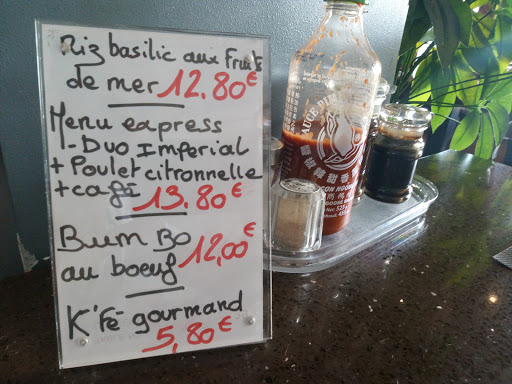 Riz basilic aux Fruits
de mer 12.80€
Menu express
- Duo Imperial
+ Poulet citronnelle
+ café 13.80€
Bum Bo 12,00€
au boeuf
K'Fé gourmand
5,80€
SAUCE